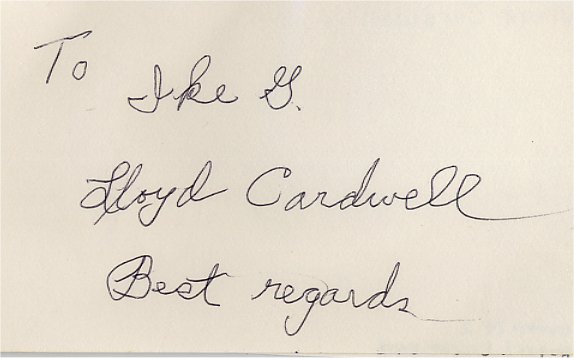 To
Ike G.
Lloyd Cardwell
Best regards